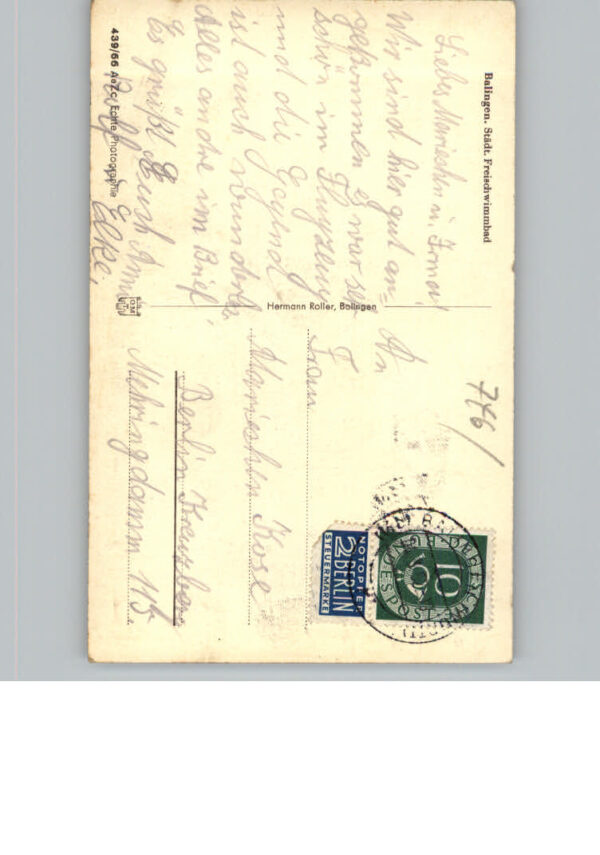 Balingen. Städt. Freischwimmbad
Liebe Mariechen u. Irma!
Wir sind hier gut an=
gekommen es war sehr
schön im Flugzeug
und die Gegend
ist auch wunderb.
Alles andre im Brief,
Es grüßt Euch
Rolf u. Elke,
439/66 AeZc, Echte Photographie
Hermann Roller, Balingen
746/
An
Frau
Mariechen Kose
Berlin Kreuzberg
Mehringdamm 115
NOTOPFER
2 BERLIN
STEUERMARKE
DEUTSCHE
BUNDESPOST
10